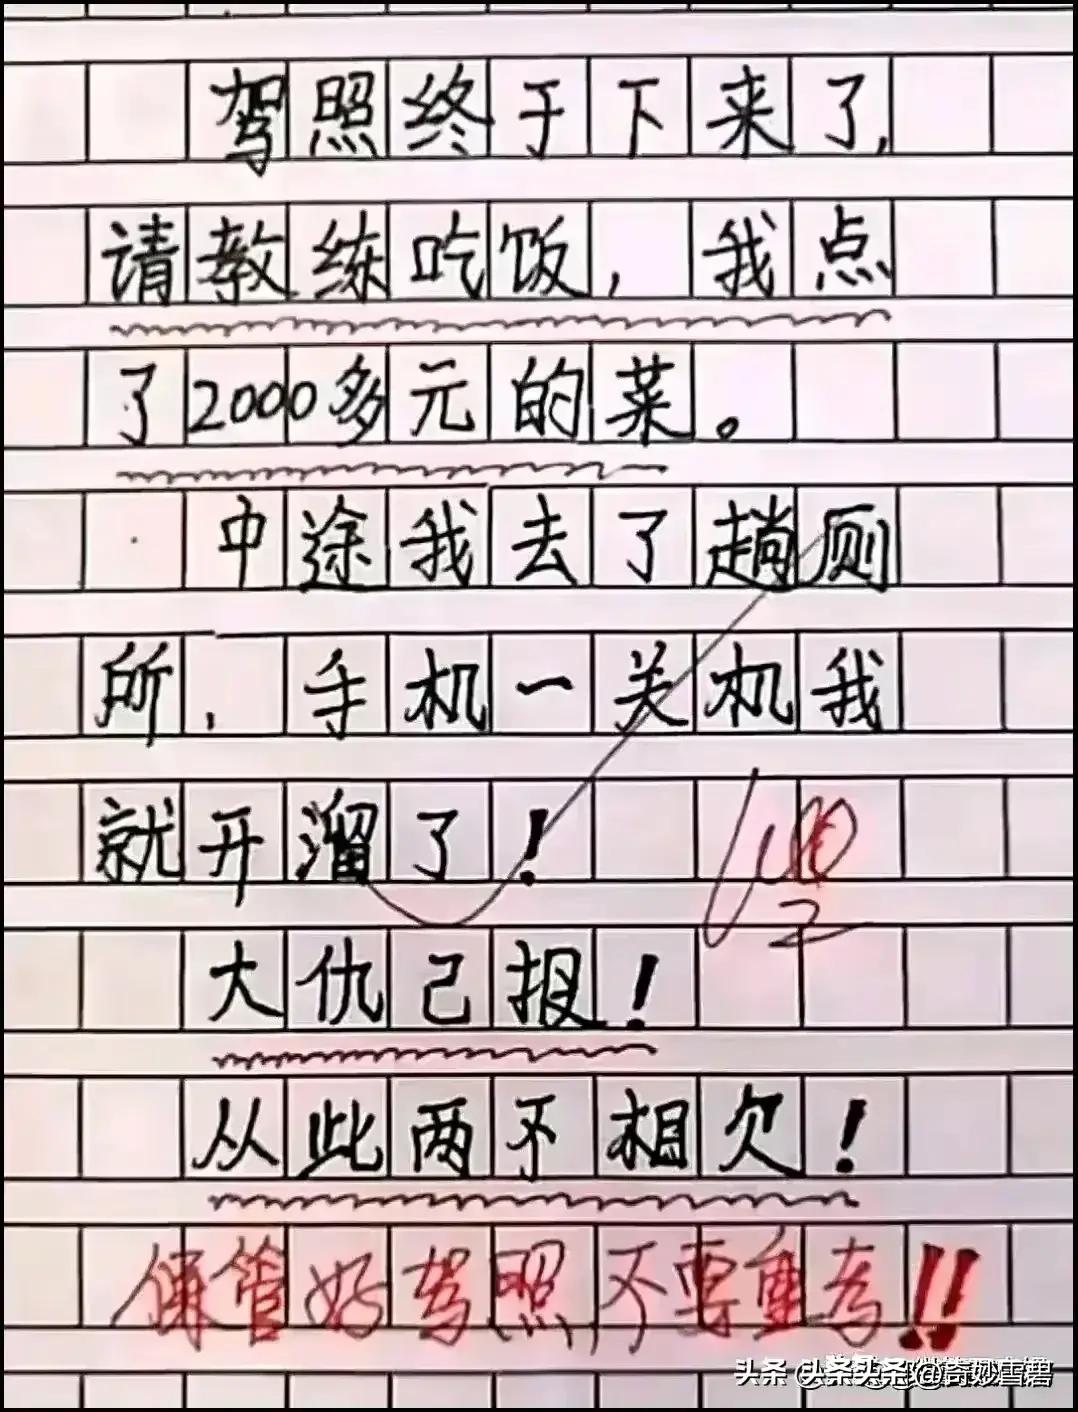 驾照终于下来了,
请教练吃饭, 我点
了2000多元的菜。
中途我去了趟厕
所, 手机一关机我
就开溜了!
100
大仇己报!
从此两不相欠!
保管好驾照,不要重考!!
头条 @奇妙雪碧